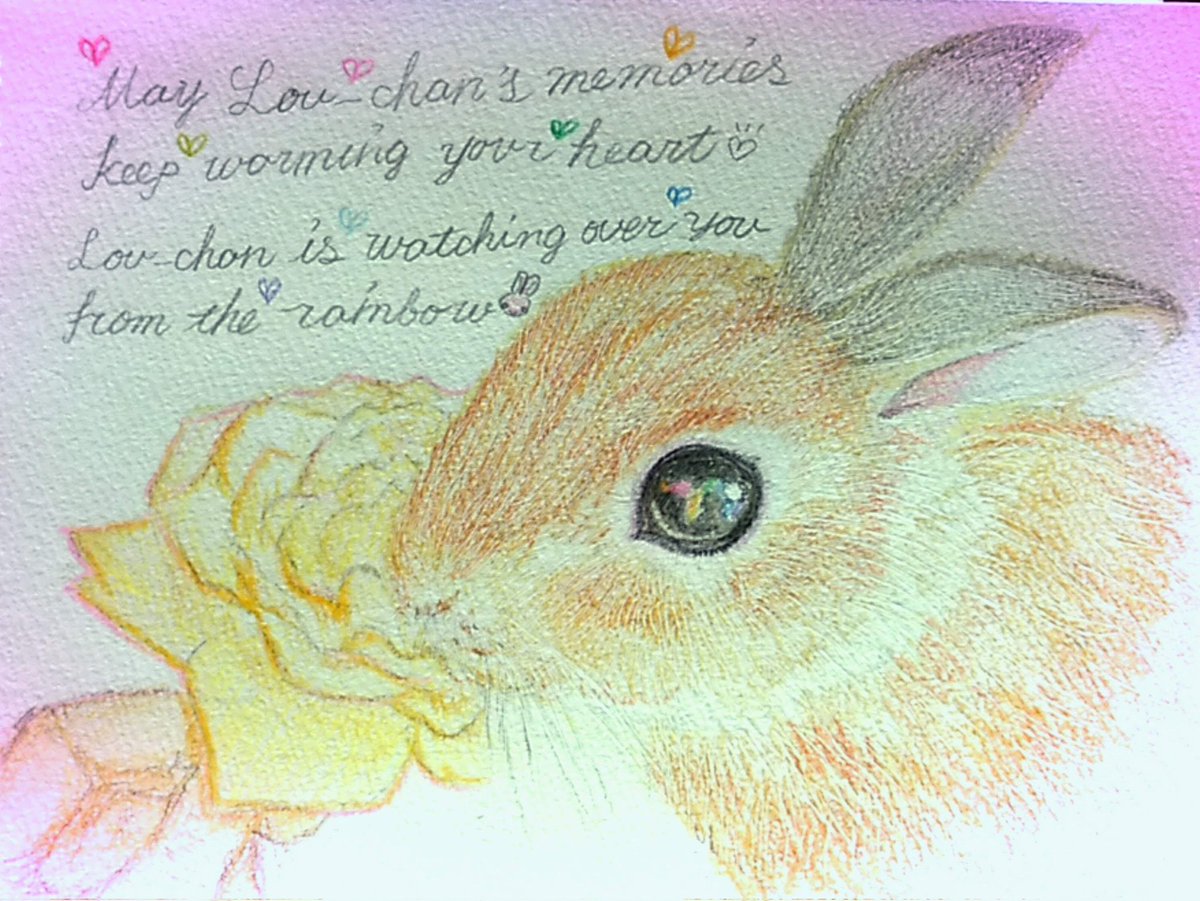 May Lou-chan's memories
keep worming your heart
Lou-chan is watching over you
from the rainbow